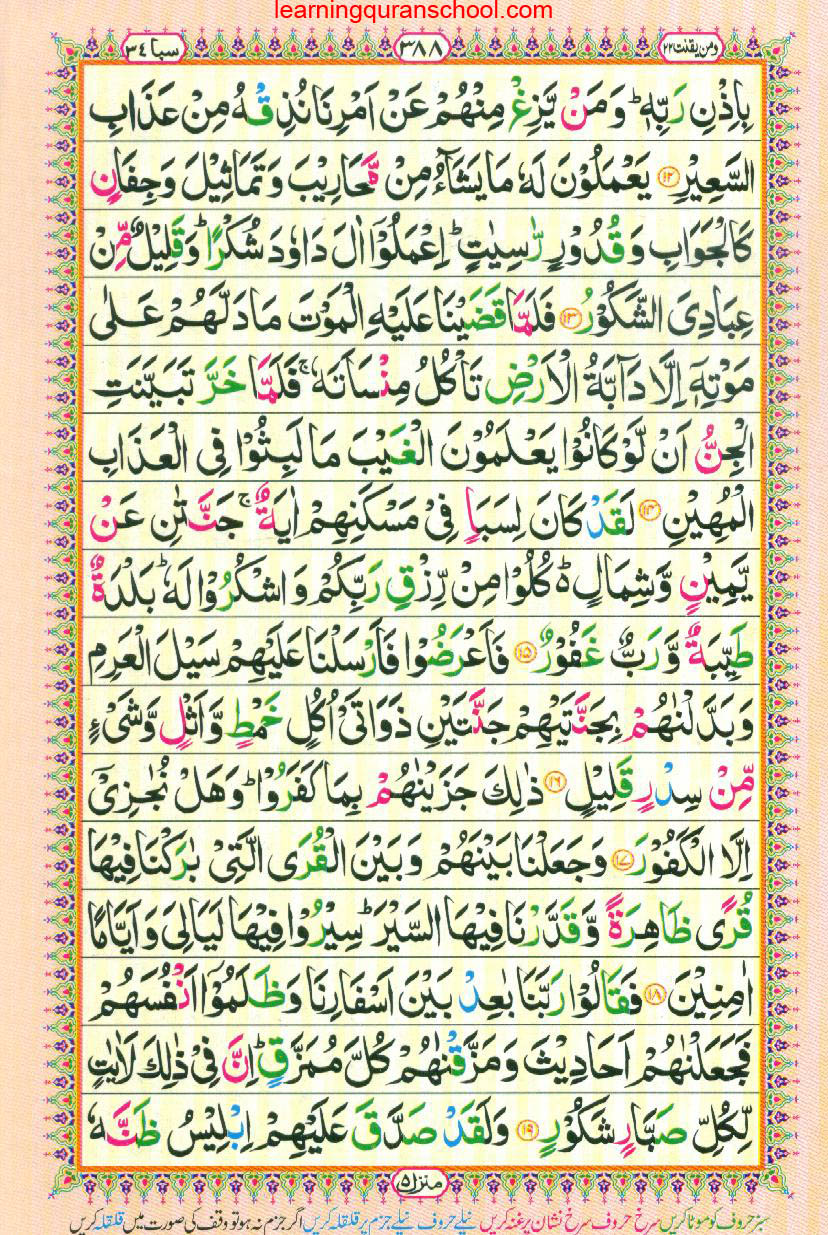 learningquranschool.com
ومن یقنت ٢٢
٣٨٨
سبا ٣٤
بِاِذْنِ رَبِّهٖ ؕ وَ مَنْ یَّزِغْ مِنْهُمْ عَنْ اَمْرِنَا نُذِقْهُ مِنْ عَذَابِ
السَّعِیْرِ ۝۱۲ یَعْمَلُوْنَ لَهٗ مَا یَشَآءُ مِنْ مَّحَارِیْبَ وَ تَمَاثِیْلَ وَ جِفَانٍ
كَالْجَوَابِ وَ قُدُوْرٍ رّٰسِیٰتٍ ؕ اِعْمَلُوْۤا اٰلَ دَاوٗدَ شُكْرًا ؕ وَ قَلِیْلٌ مِّنْ
عِبَادِیَ الشَّكُوْرُ ۝۱۳ فَلَمَّا قَضَیْنَا عَلَیْهِ الْمَوْتَ مَا دَلَّهُمْ عَلٰی
مَوْتِهٖۤ اِلَّا دَآبَّةُ الْاَرْضِ تَاْكُلُ مِنْسَاَتَهٗ ۚ فَلَمَّا خَرَّ تَبَیَّنَتِ
الْجِنُّ اَنْ لَّوْ كَانُوْا یَعْلَمُوْنَ الْغَیْبَ مَا لَبِثُوْا فِی الْعَذَابِ
الْمُهِیْنِ ۝۱۴ لَقَدْ كَانَ لِسَبَاٍ فِیْ مَسْكَنِهِمْ اٰیَةٌ ۚ جَنَّتٰنِ عَنْ
یَّمِیْنٍ وَّ شِمَالٍ ؕ۬ كُلُوْا مِنْ رِّزْقِ رَبِّكُمْ وَ اشْكُرُوْا لَهٗ ؕ بَلْدَةٌ
طَیِّبَةٌ وَّ رَبٌّ غَفُوْرٌ ۝۱۵ فَاَعْرَضُوْا فَاَرْسَلْنَا عَلَیْهِمْ سَیْلَ الْعَرِمِ
وَ بَدَّلْنٰهُمْ بِجَنَّتَیْهِمْ جَنَّتَیْنِ ذَوَاتَیْ اُكُلٍ خَمْطٍ وَّ اَثْلٍ وَّ شَیْءٍ
مِّنْ سِدْرٍ قَلِیْلٍ ۝۱۶ ذٰلِكَ جَزَیْنٰهُمْ بِمَا كَفَرُوْا ؕ وَ هَلْ نُجٰزِیْۤ
اِلَّا الْكَفُوْرَ ۝۱۷ وَ جَعَلْنَا بَیْنَهُمْ وَ بَیْنَ الْقُرَی الَّتِیْ بٰرَكْنَا فِیْهَا
قُرًی ظَاهِرَةً وَّ قَدَّرْنَا فِیْهَا السَّیْرَ ؕ سِیْرُوْا فِیْهَا لَیَالِیَ وَ اَیَّامًا
اٰمِنِیْنَ ۝۱۸ فَقَالُوْا رَبَّنَا بٰعِدْ بَیْنَ اَسْفَارِنَا وَ ظَلَمُوْۤا اَنْفُسَهُمْ
فَجَعَلْنٰهُمْ اَحَادِیْثَ وَ مَزَّقْنٰهُمْ كُلَّ مُمَزَّقٍ ؕ اِنَّ فِیْ ذٰلِكَ لَاٰیٰتٍ
لِّكُلِّ صَبَّارٍ شَكُوْرٍ ۝۱۹ وَ لَقَدْ صَدَّقَ عَلَیْهِمْ اِبْلِیْسُ ظَنَّهٗ
منزل ٥
سبز حروف کو موٹا کریں سرخ حروف سرخ نشان پر غنہ کریں نیلے حروف نیلے جزم پر قلقلہ کریں اگر جزم نہ ہو تو وقف کی صورت میں قلقلہ کریں